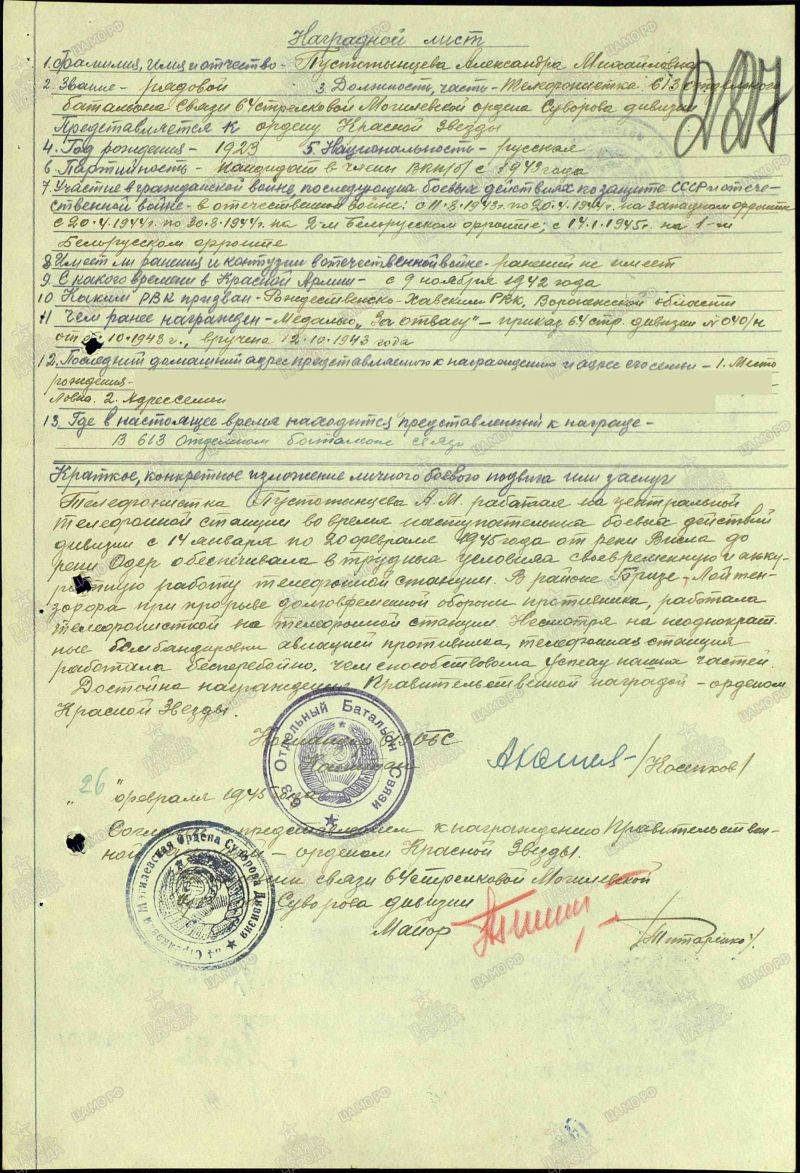 Наградной лист
1. Фамилия, имя и отчество - Пустотынцева Александра Михайловна
2. Звание - рядовой 3. Должность, часть - Телефонистка 613 отдельного
батальона Связи 64 стрелковой Могилевской ордена Суворова дивизии
Представляется к ордену Красной Звезды
4. Год рождения - 1923 5. Национальность - русская
6. Партийность - кандидат в члены ВКП/б/ с 1943 года
7. Участие в гражданской войне, последующих боевых действиях по защите СССР и отече-
ственной войне - в отечественной войне: с 11.8.1943г. по 20.4.1944г. на западном фронте
с 20.4.1944г. по 20.8.1944г. на 2-м Белорусском фронте; с 14.1.1945г. на 1-м
Белорусском фронте
8. Имеет ли ранения и контузии в отечественной войне - ранений не имеет
9. С какого времени в Красной Армии - с 9 ноября 1942 года
10. Каким РВК призван - Рождественско-Хавским РВК, Воронежской области
11. Чем ранее награжден - Медалью „За отвагу" - приказ 64 стр. дивизии № 040/н
от 10.1943 г., вручена 12.10.1943 года
12. Последний домашний адрес представляемого к награждению и адрес его семьи - 1. Место
рождения -
2. Адрес семьи
13. Где в настоящее время находится представленный к награде -
В 613 Отдельном батальоне связи
Краткое, конкретное изложение личного боевого подвига или заслуг
Телефонистка Пустотынцева А.М. работая на центральной
телефонной станции во время наступательных боевых действий
дивизии с 14 января по 20 февраля 1945 года от реки Висла до
реки Одер обеспечивала в трудных условиях своевременную и акку-
ратную работу телефонной станции. В районе Бризе, Лойтен-
здорфа при прорыве долговременной обороны противника, работала
телефонисткой на телефонной станции. Несмотря на неоднократ-
ные бомбандировки авиацией противника, телефонная станция
работала бесперебойно, чем способствовала успеху наших частей.
Достойна награждения Правительственной наградой - орденом
Красной Звезды.
Командир 613 ОБС
Капитан /Косенков/
„26" февраля 1945 года
613 Отдельный Батальон Связи
Согласен с представлением к награждению Правительствен-
ной - орденом Красной Звезды.
связи 64 стрелковой Могилевской
Суворова дивизии
Майор /Титаренко/
64 Стрелковая Могилевская Ордена Суворова Дивизия
ЦАМО.РФ